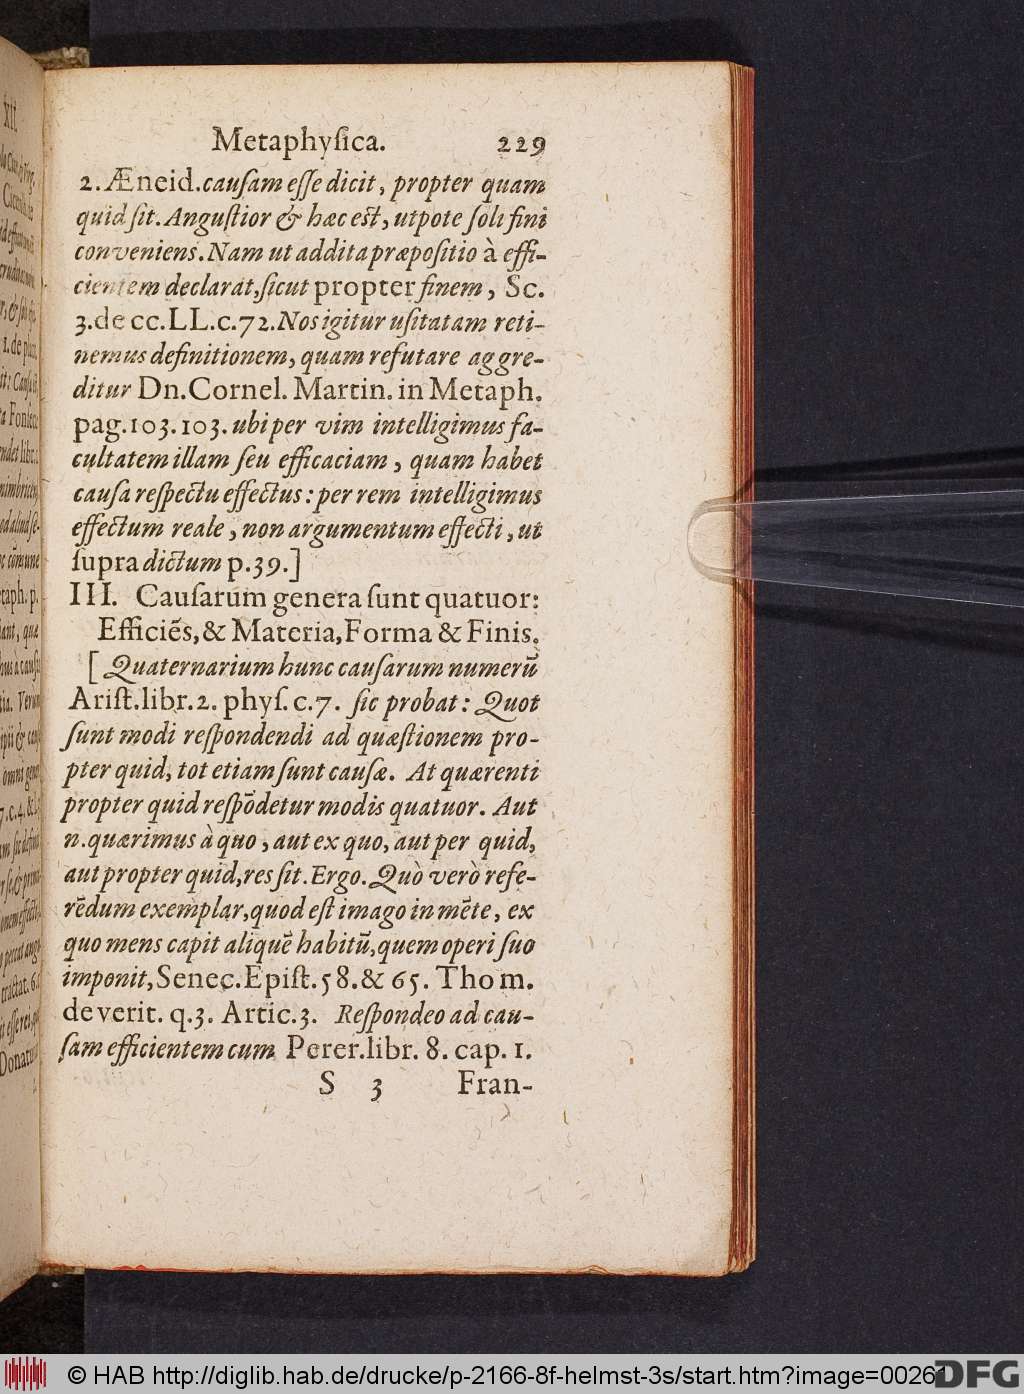 Metaphyſica. 229
2. Æneid. cauſam eſſe dicit, propter quam
quid ſit. Anguſtior & hæc eſt, utpote ſoli fini
conveniens. Nam ut addita præpoſitio à effi-
cientem declarat, ſicut propter finem, Sc.
3. de cc. LL. c. 72. Nos igitur uſitatam reti-
nemus definitionem, quam refutare aggre-
ditur Dn. Cornel. Martin. in Metaph.
pag. 103. 103. ubi per vim intelligimus fa-
cultatem illam ſeu efficaciam, quam habet
cauſa reſpectu effectus: per rem intelligimus
effectum reale, non argumentum effecti, ut
ſupra dictum p. 39.]
III. Cauſarum genera ſunt quatuor:
Efficiẽs, & Materia, Forma & Finis.
[Quaternarium hunc cauſarum numerũ
Ariſt. libr. 2. phyſ. c. 7. ſic probat: Quot
ſunt modi reſpondendi ad quæſtionem pro-
pter quid, tot etiam ſunt cauſæ. At quærenti
propter quid reſpõdetur modis quatuor. Aut
n. quærimus à quo, aut ex quo, aut per quid,
aut propter quid, res ſit. Ergo. Quò verò refe-
rẽdum exemplar, quod eſt imago in mẽte, ex
quo mens capit aliquẽ habitũ, quem operi ſuo
imponit, Senec. Epiſt. 58. & 65. Thom.
de verit. q. 3. Artic. 3. Reſpondeo ad cau-
ſam efficientem cum Perer. libr. 8. cap. 1.
S 3 Fran-
© HAB http://diglib.hab.de/drucke/p-2166-8f-helmst-3s/start.htm?image=00261
DFG